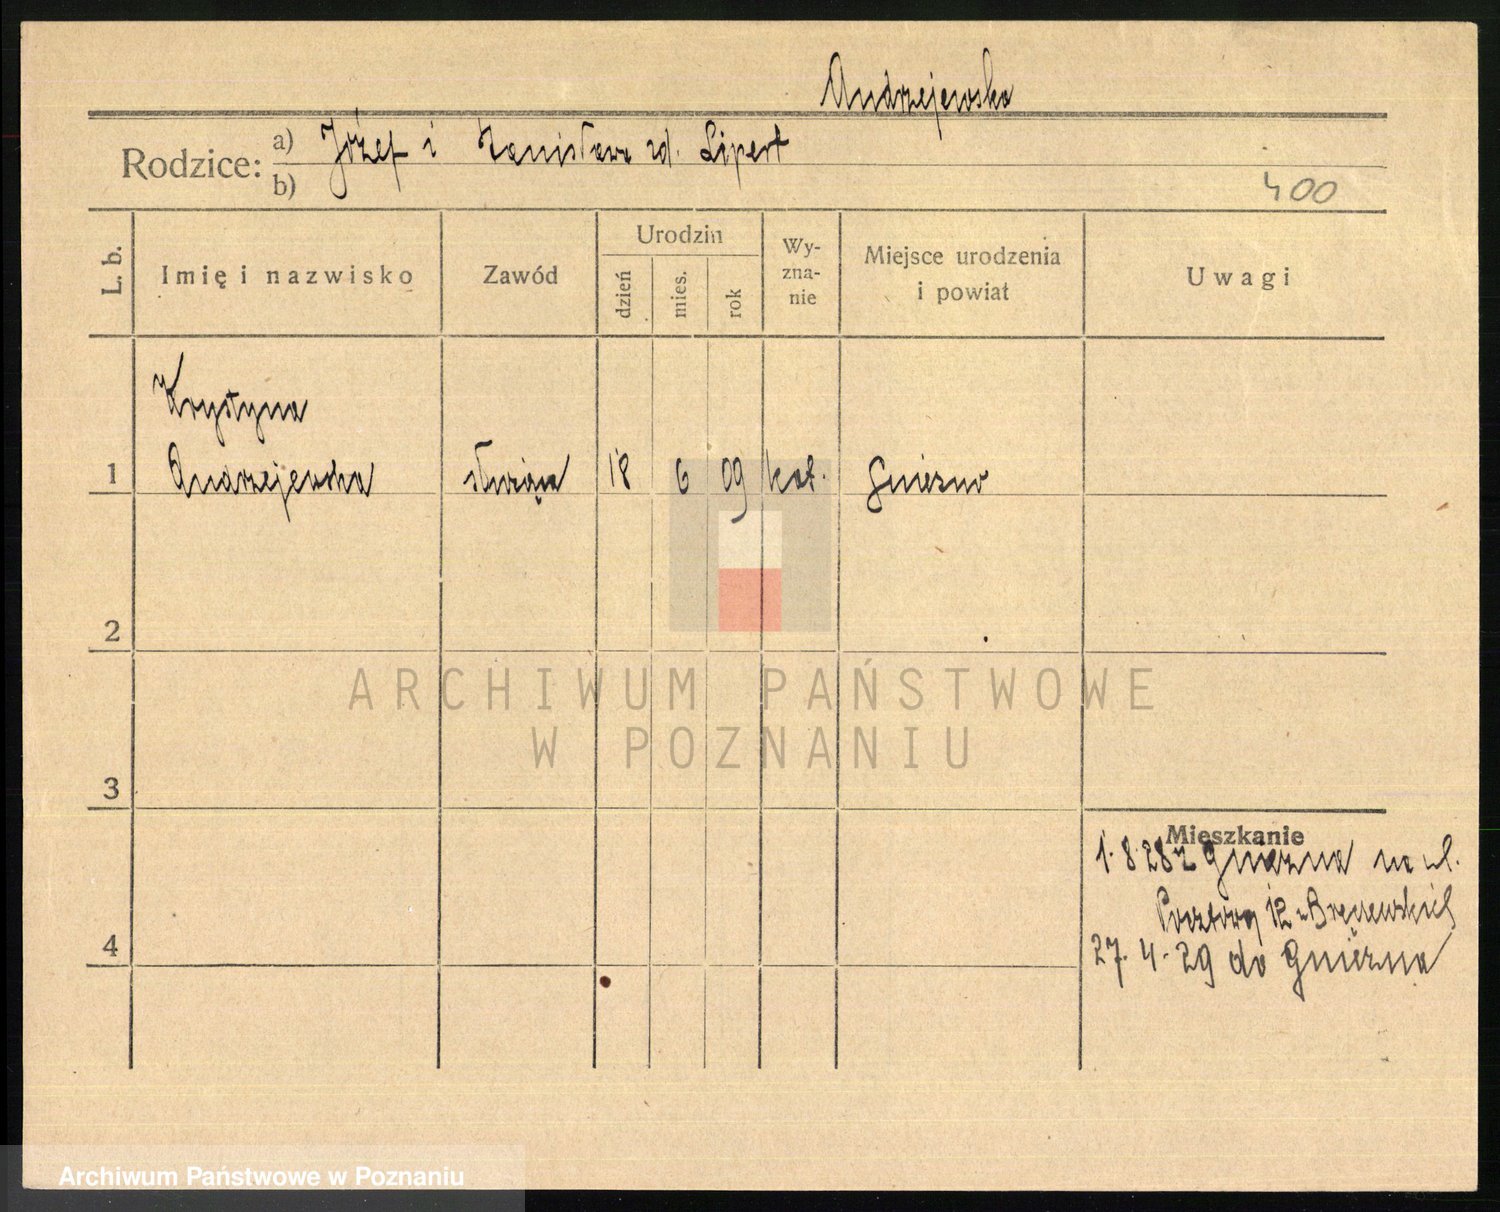 Andrzejewska
Rodzice:
a) Józef i Stanisława zd. Lipert
b)
400
L. b.
Imię i nazwisko
Zawód
Urodzin
dzień
mies.
rok
Wy-
zna-
nie
Miejsce urodzenia
i powiat
Uwagi
Krystyna
1 Andrzejewska służąca 18 6 09 kat. Gniezno
2
ARCHIWUM PAŃSTWOWE
W POZNANIU
3
Mieszkanie
1.8.28 z Gniezna na ul.
Pocztową 12
4
27.4.29 do Gniezna
Archiwum Państwowe w Poznaniu